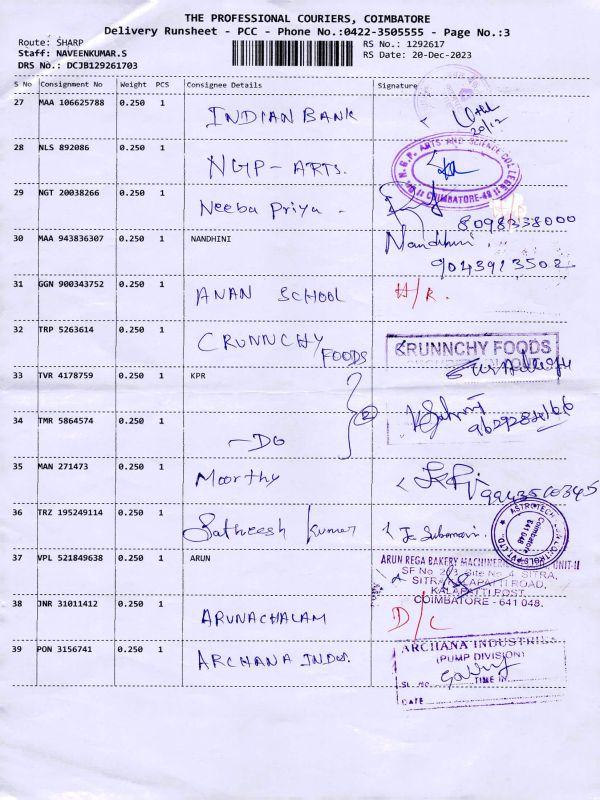 THE PROFESSIONAL COURIERS, COIMBATORE
Delivery Runsheet - PCC - Phone No.:0422-3505555 - Page No.:3
Route: SHARP
RS No.: 1292617
Staff: NAVEENKUMAR.S
RS Date: 20-Dec-2023
DRS No.: DCJB129261703
S No Consignment No Weight PCS Consignee Details Signature
27 MAA 106625788 0.250 1 INDIAN BANK
20/12
28 NLS 892086 0.250 1 NGP - ARTS.
N.G.P. ARTS AND SCIENCE COLLEGE
COIMBATORE-48
29 NGT 20038266 0.250 1 Neeba Priya -
8098338000
30 MAA 943836307 0.250 1 NANDHINI Nandhini
9043913502
31 GGN 900343752 0.250 1 ANAN SCHOOL H/R.
32 TRP 5263614 0.250 1 CRUNNCHY FOODS
KRUNNCHY FOODS
33 TVR 4178759 0.250 1 KPR
34 TMR 5864574 0.250 1 - DO 2
35 MAN 271473 0.250 1 Moorthy
36 TRZ 195249114 0.250 1 Satheesh Kumar
Coimbatore
641 048
37 VPL 521849638 0.250 1 ARUN
ARUN REGA BAKERY MACHINERIES UNIT-II
SITRA, KALAPATTI ROAD,
KALAPATTI POST,
COIMBATORE - 641 048.
38 JNR 31011412 0.250 1 ARUNACHALAM D/C
39 PON 3156741 0.250 1 ARCHANA INDUS.
ARCHANA INDUSTRIES
(PUMP DIVISION)
SL. NO. TIME IN
DATE